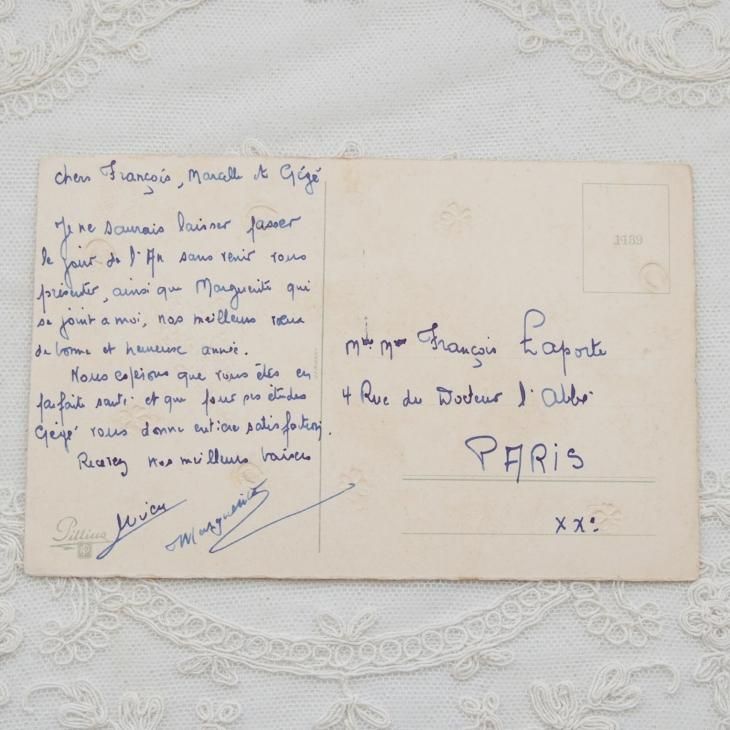 Chers François, Marcelle et Gégé
Je ne saurais laisser passer
le jour de l'An sans venir vous
présenter, ainsi que Marguerite qui
se joint a moi, nos meilleurs vœux
de bonne et heureuse année.
Nous espérons que vous êtes en
parfaite santé et que pour ses études
Gégé vous donne entière satisfaction.
Recevez nos meilleurs baisers
Marguerite
1489
François Laporte
4 Rue du Docteur l'Abbé
PARIS
XXe